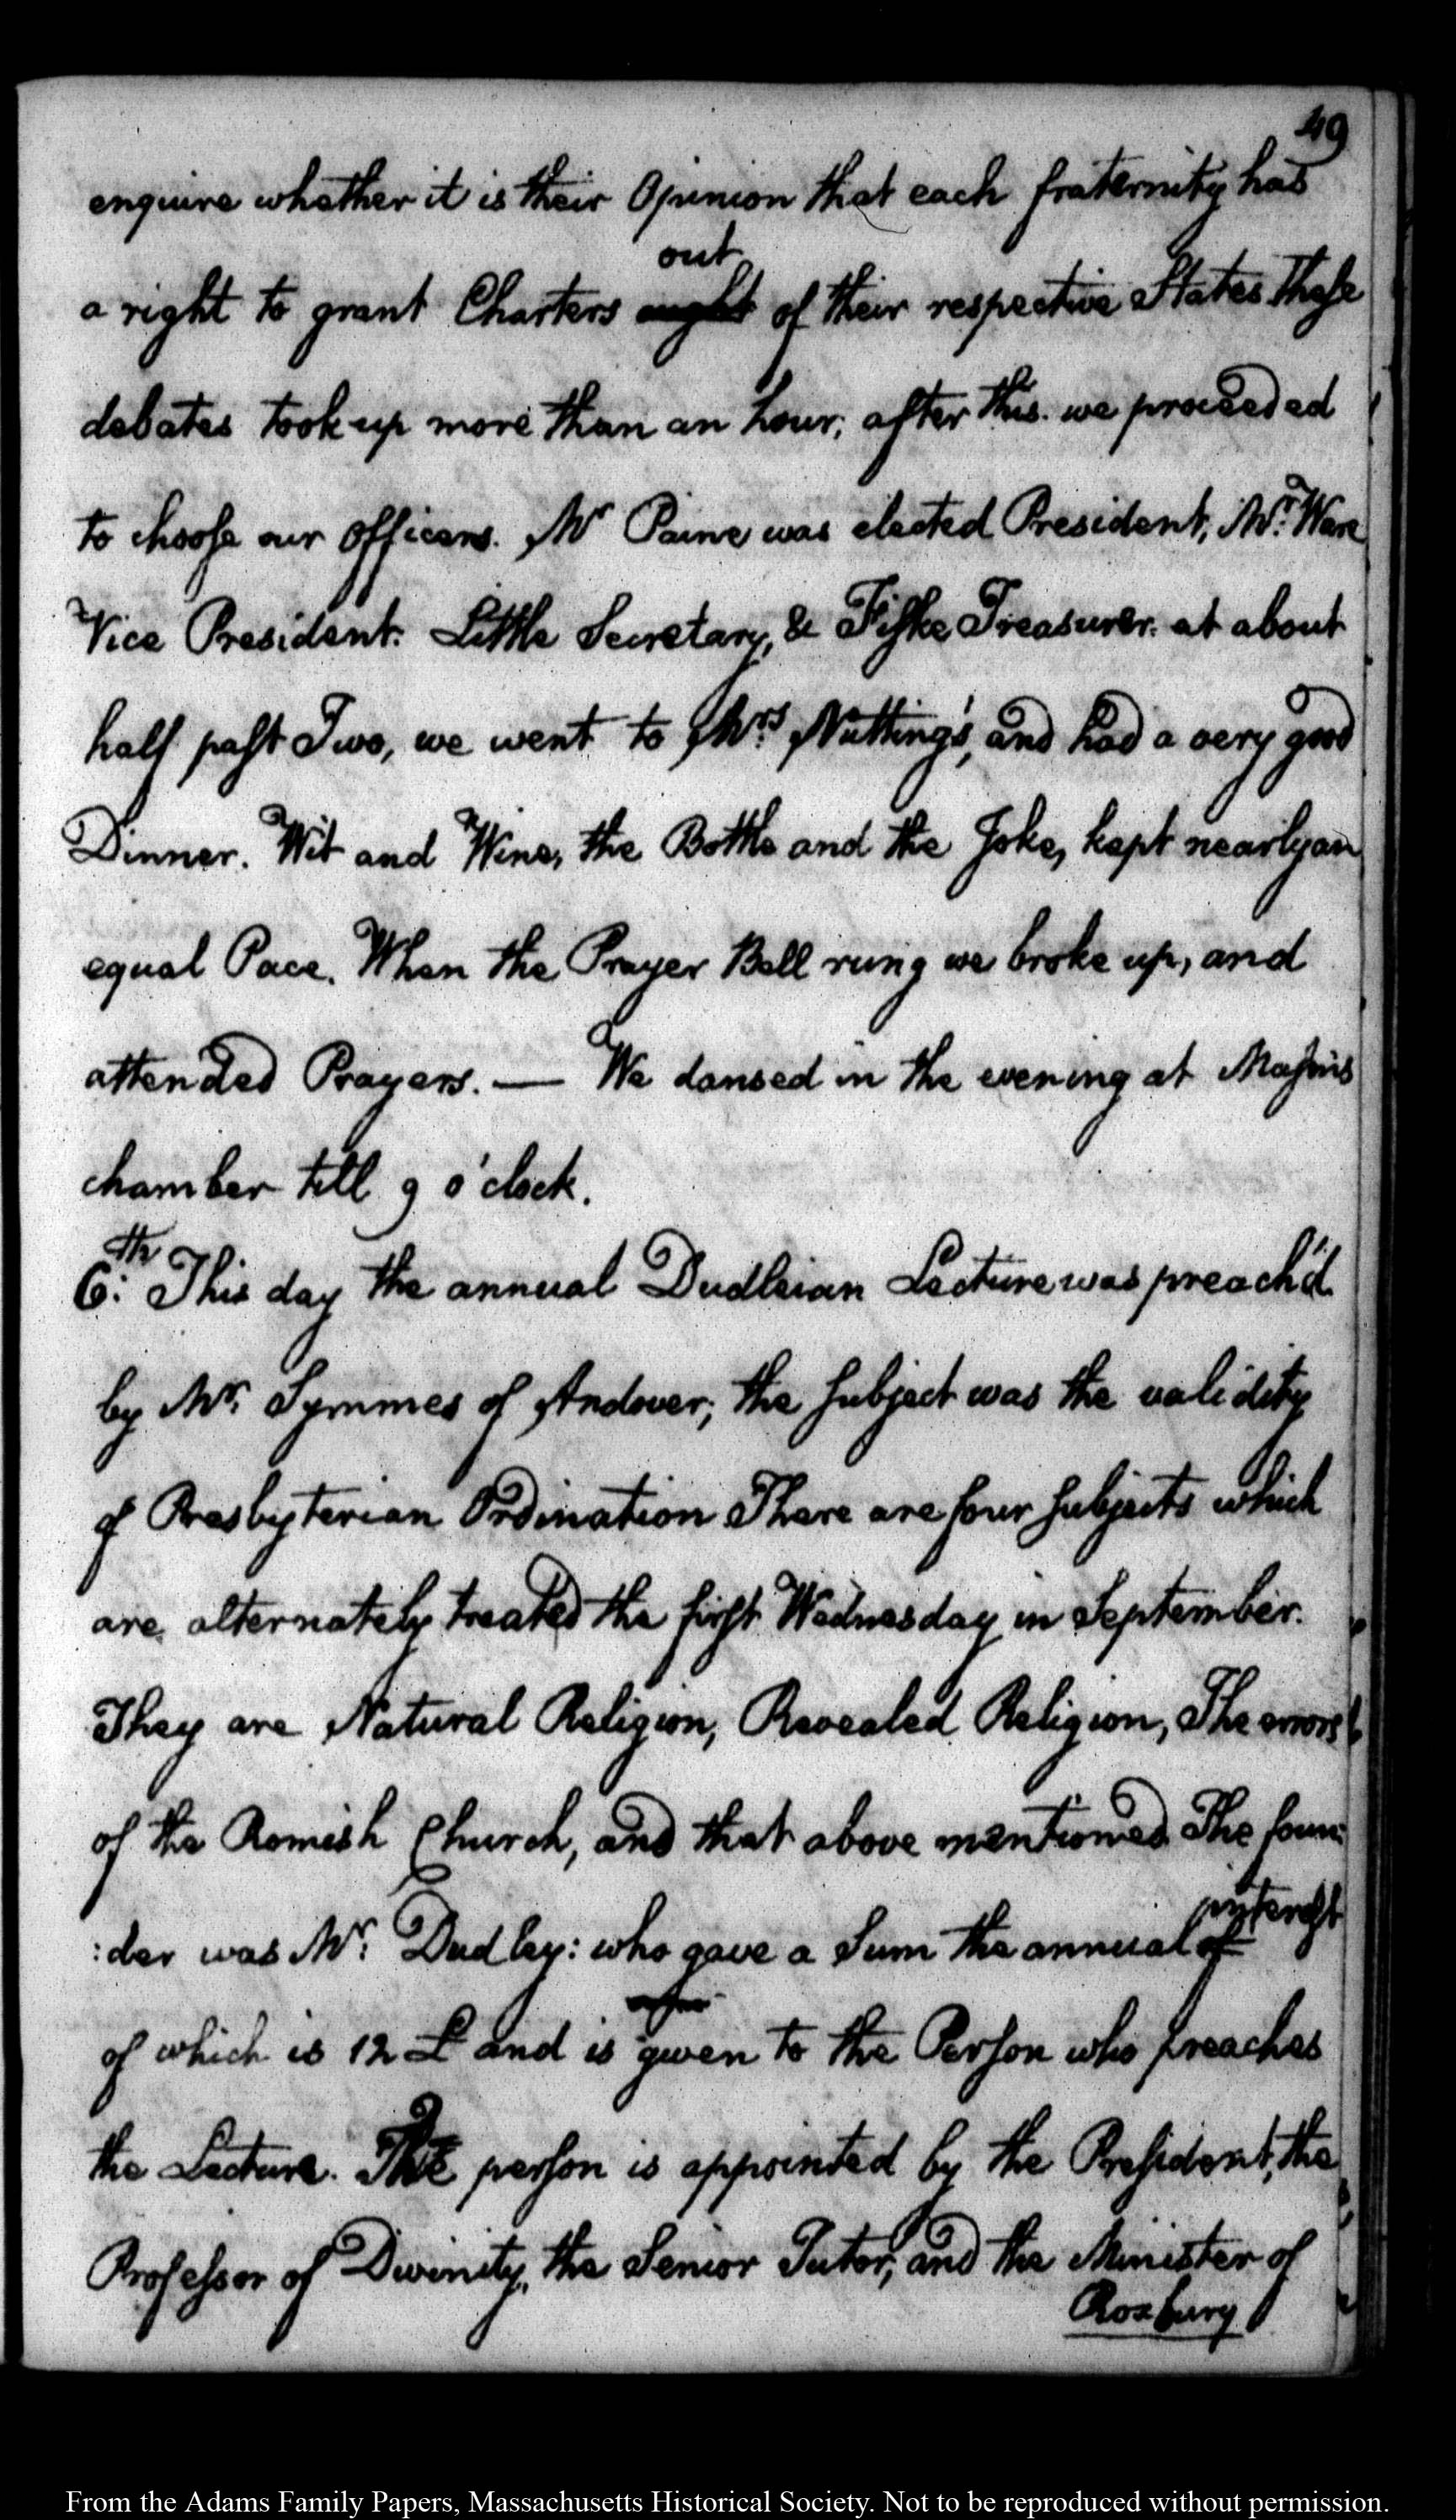 49
enquire whether it is their Opinion that each fraternity has
out
a right to grant Charters ought of their respective States. These
debates took up more than an hour; after this. we proceeded
to choose our Officers. Mr Paine was elected President, Mr. Ware
Vice President. Little Secretary, & Fiske Treasurer. at about
half past Two, we went to Mrs. Nutting's, and had a very good
Dinner. Wit and Wine, the Bottle and the Joke, kept nearly an
equal Pace. When the Prayer Bell rung we broke up, and
attended Prayers. — We dansed in the evening at Mason's
chamber till 9 o'clock.
6th: This day the annual Dudleian Lecture was preach'd
by Mr. Symmes of Andover; the subject was the validity
of Presbyterian Ordination There are four subjects which
are alternately treated the first Wednesday in September.
They are Natural Religion, Revealed Religion, The errors
of the Romish Church, and that above mentioned. The foun:
interest
:der was Mr: Dudley: who gave a Sum the annual of
of which is 12 £ and is given to the Person who preaches
the Lecture. The person is appointed by the President, the
Professor of Divinity, the Senior Tutor, and the Minister of
Roxbury
From the Adams Family Papers, Massachusetts Historical Society. Not to be reproduced without permission.